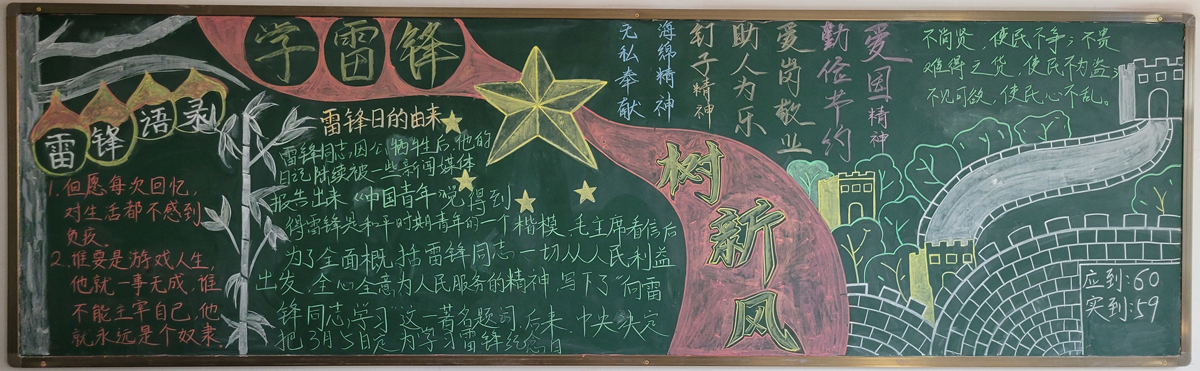 学雷锋
树新风
雷锋语录
1. 但愿每次回忆,
对生活都不感到
负疚.
2. 谁要是游戏人生,
他就一事无成,谁
不能主宰自己,他
就永远是个奴隶.
雷锋日的由来
雷锋同志因公牺牲后,他的
日记陆续被一些新闻媒体
报告出来《中国青年》觉得到
得雷锋是和平时期青年的一个楷模,毛主席看信后
为了全面概括雷锋同志一切从人民利益
出发,全心全意为人民服务的精神,写下了“向雷
锋同志学习”这一著名题词,后来,中央决定
把3月5日定为学习雷锋纪念日
无私奉献
海绵精神
钉子精神
助人为乐
爱岗敬业
勤俭节约
爱国精神
不尚贤,使民不争;不贵
难得之货,使民不为盗;
不见可欲,使民心不乱。
应到:60
实到:59